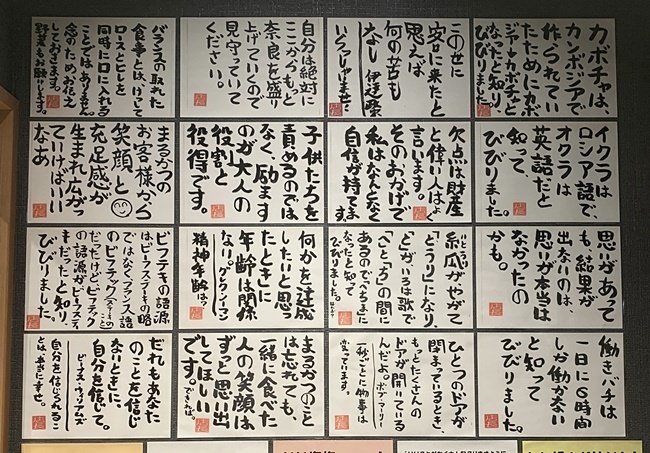 カボチャは、
カンボジアで
作られてい
たためにカボ
ジア→カボチャと
なったと知り、
びびりました。
この世に
客に来たと
思えば
何の苦も
なし 伊達政宗
いらっしゃいませ
自分は絶対に
ここからもっと
奈良を盛り
上げていくので
見守っていて
ください。
バランスの取れた
食事とは、けっして
ロースとヒレを
同時に口に入れる
ことではありません。
念のためお伝え
しておきます。
野菜もお願いします。
イクラは
ロシア語で、
オクラは
英語だと
知って、
びびりました。
欠点は財産
と偉い人はよく
言います。
そのおかげで
私はなんとなく
自信が持てま
す。
子供たちを
責めるのでは
なく、励ます
のが大人の
役割と
役得です。
まるかつの
お客様から
笑顔と
充足感が
生まれ広がっ
ていけばいい
なあ
思いがあって
も、結果が
出ないのは、
思いが本当は
なかったの
かも。
糸瓜がやがて
「とうり」になり、
「と」がいろは歌で
「へ」と「ち」の間に
あるので「へちま」に
なったと知って
びびりました。
何かを達成
したいと思っ
たときに
年齢は関係
ない。
精神年齢は?
ビフテキの語源
はビーフステーキの略
ではなく、フランス語
のビフテック
だったけど、ビフテック
の語源がビーフステー
キだったと知り、
びびりました。
働きバチは
一日に6時間
しか働かない
と知って
びびりました。
ひとつのドアが
閉まっているとき、
もっとたくさんの
ドアが開いている
んだよ。 ボブ・マーリー
一秒ごとに物事は
変わっています。
まるかつのこと
は忘れても、
一緒に食べた
人の笑顔は、
ずっと思い出
してほしい
です。できれば。
だれもあなた
のことを信じ
ないときに、
自分を信じて。
ビーナス・ウィリアムズ
自分を信じられるこ
とは、本当に幸せ。